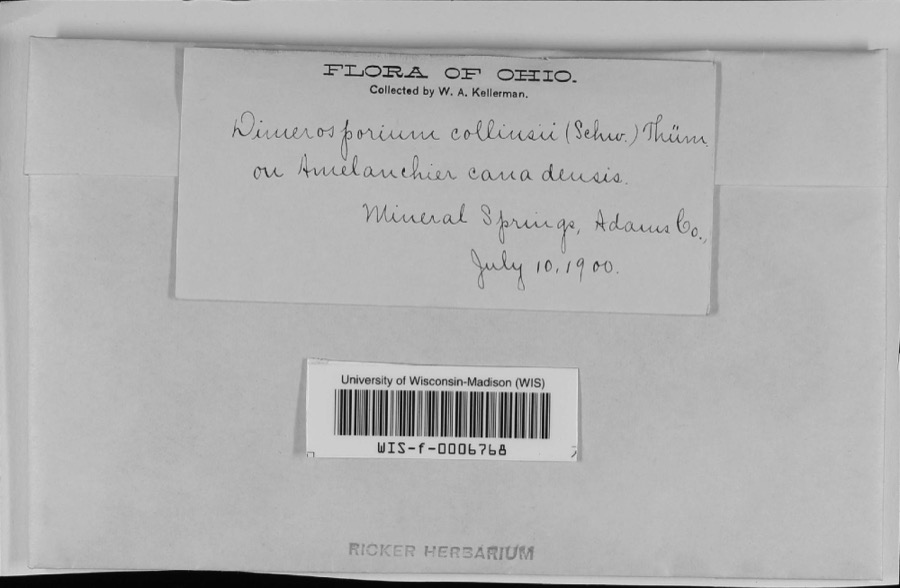 FLORA OF OHIO.
Collected by W. A. Kellerman.
Dimerosporium collinsii (Schw.) Thüm.
on Amelanchier canadensis.
Mineral Springs, Adams Co.,
July 10, 1900.
University of Wisconsin-Madison (WIS)
WIS-f-0006768
RICKER HERBARIUM